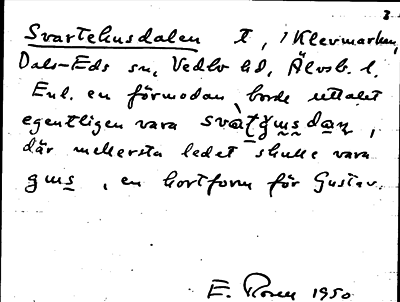 3
Svartehusdalen I, i Klevmarken,
Dals-Eds sn, Vedbo hd, Älvsb. l.
Enl. en förmodan borde uttalet
egentligen vara
där mellersta ledet skulle vara
gus, en kortform för Gustav.
E. Rosen 1950